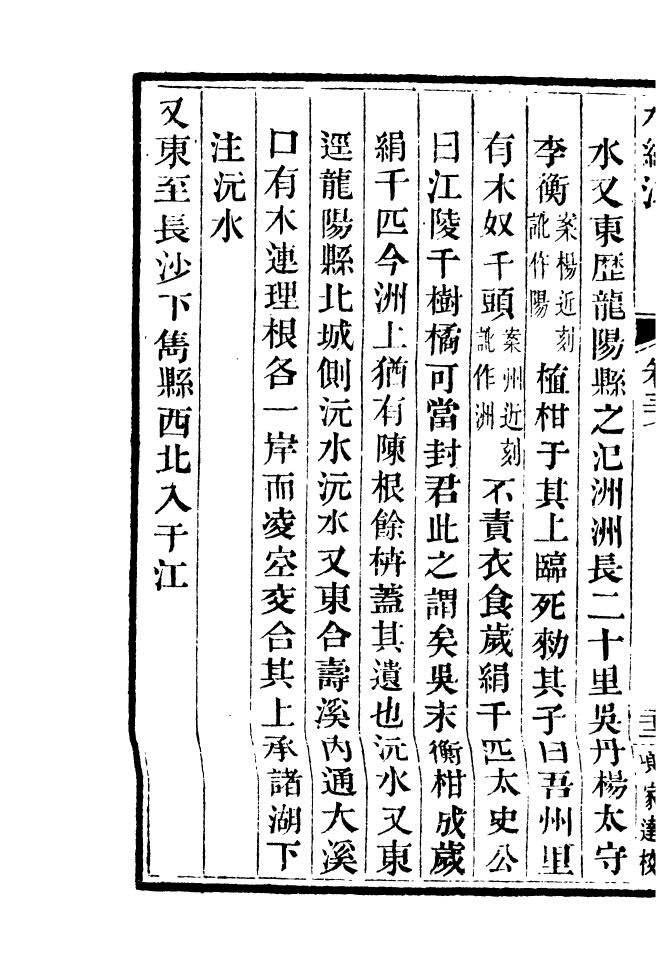 水又東歷龍陽縣之氾洲洲長二十里吳丹楊太守
李衡案楊近刻訛作陽植柑于其上臨死勑其子曰吾州里
有木奴千頭案州近刻訛作洲不責衣食歲絹千匹太史公
曰江陵千樹橘可當封君此之謂矣吳末衡柑成歲
絹千匹今洲上猶有陳根餘枿蓋其遺也沅水又東
逕龍陽縣北城側沅水沅水又東合壽溪內通大溪
口有木連理根各一岸而凌空交合其上承諸湖下
注沅水
又東至長沙下雋縣西北入于江